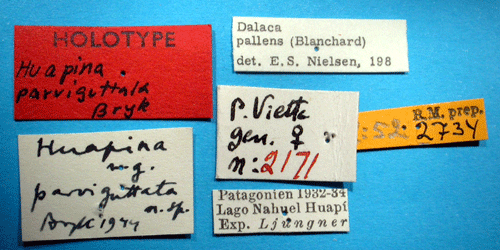 HOLOTYPE
Huapina
parviguttata
Bryk
Dalaca
pallens (Blanchard)
det. E.S. Nielsen, 198
P. Viette
gen. ♀
n: 2171
R.M. prep.
2734
Huapina
n.g.
parviguttata
n. sp.
Bryk 1944
Patagonien 1932-34
Lago Nahuel Huapí
Exp. Ljungner